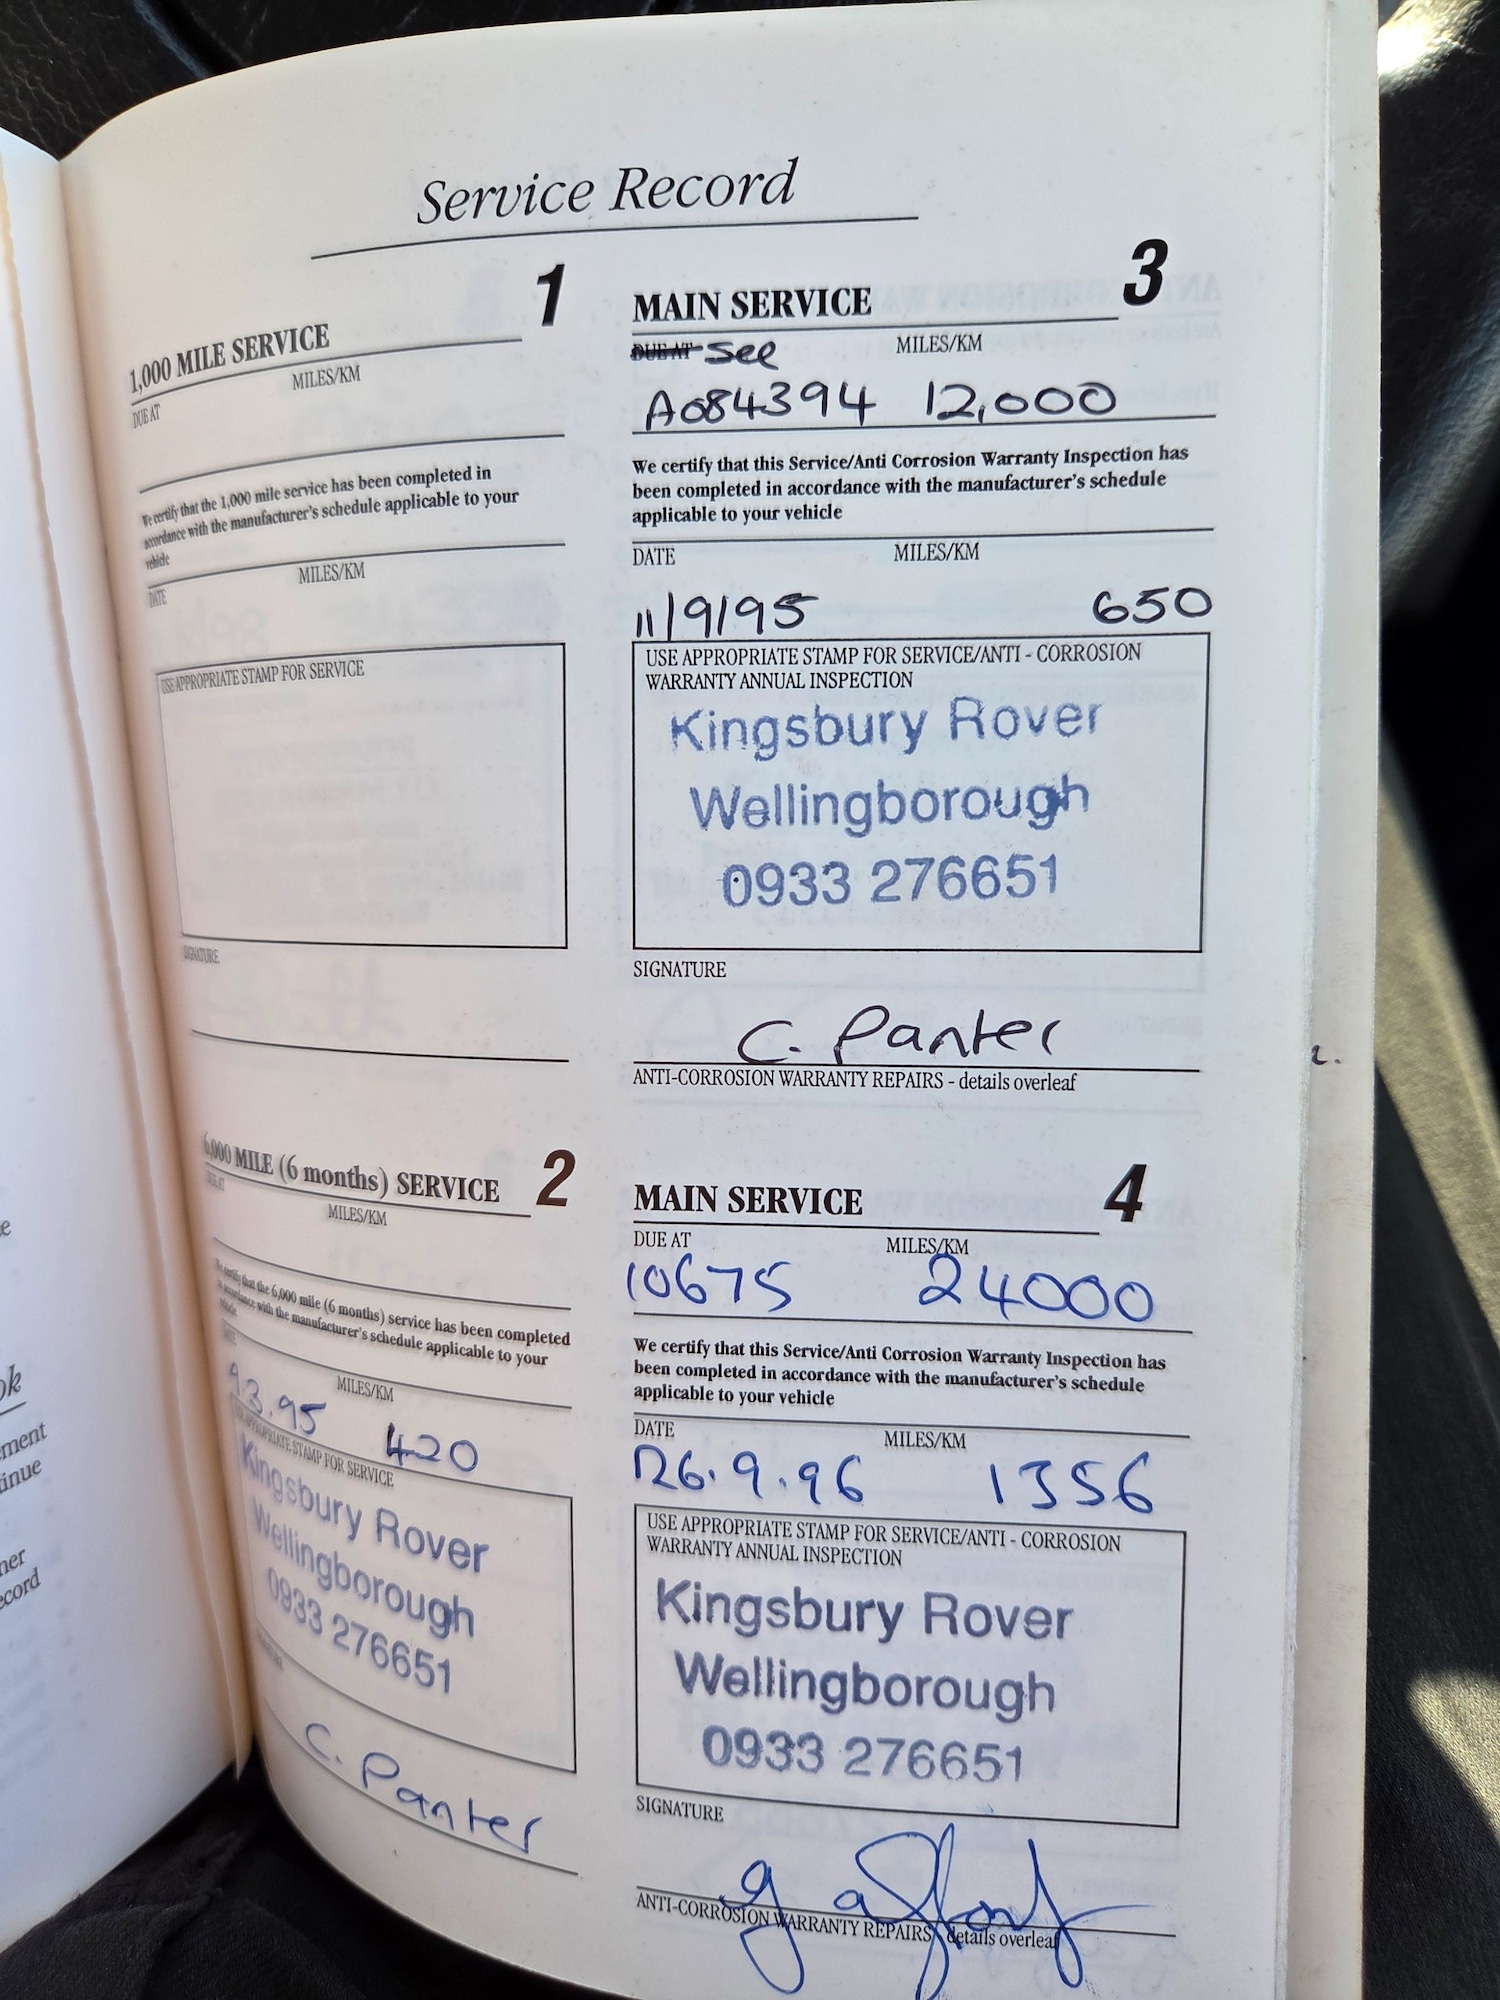 Service Record
1
1,000 MILE SERVICE
MILES/KM
DUE AT
We certify that the 1,000 mile service has been completed in
accordance with the manufacturer's schedule applicable to your
vehicle
MILES/KM
DATE
USE APPROPRIATE STAMP FOR SERVICE
SIGNATURE
6,000 MILE (6 months) SERVICE 2
DUE AT
MILES/KM
We certify that the 6,000 mile (6 months) service has been completed
in accordance with the manufacturer's schedule applicable to your
vehicle
DATE
MILES/KM
3.95 420
USE APPROPRIATE STAMP FOR SERVICE
Kingsbury Rover
Wellingborough
0933 276651
SIGNATURE
C. Panter
3
MAIN SERVICE
DUE AT see MILES/KM
A084394 12,000
We certify that this Service/Anti Corrosion Warranty Inspection has
been completed in accordance with the manufacturer's schedule
applicable to your vehicle
DATE MILES/KM
11/9/95 650
USE APPROPRIATE STAMP FOR SERVICE/ANTI - CORROSION
WARRANTY ANNUAL INSPECTION
Kingsbury Rover
Wellingborough
0933 276651
SIGNATURE
C. Panter
ANTI-CORROSION WARRANTY REPAIRS - details overleaf
MAIN SERVICE 4
DUE AT MILES/KM
10675 24000
We certify that this Service/Anti Corrosion Warranty Inspection has
been completed in accordance with the manufacturer's schedule
applicable to your vehicle
DATE MILES/KM
26.9.96 1356
USE APPROPRIATE STAMP FOR SERVICE/ANTI - CORROSION
WARRANTY ANNUAL INSPECTION
Kingsbury Rover
Wellingborough
0933 276651
SIGNATURE
ANTI-CORROSION WARRANTY REPAIRS - details overleaf